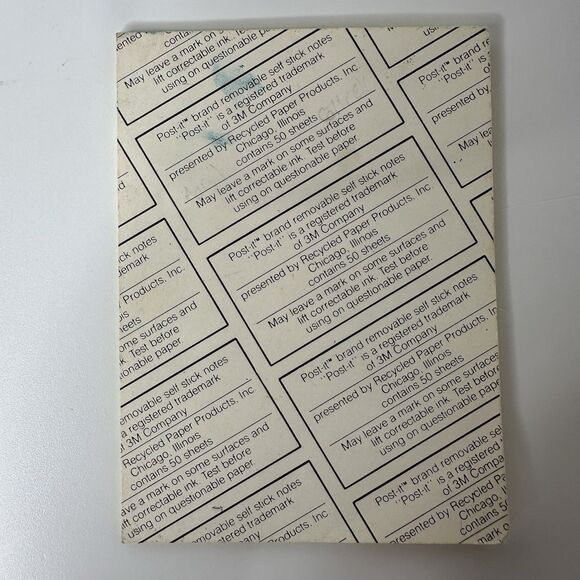 ented
conta
May leave a mark on som
lift correctable ink. T
using on questionable
Post-it™ brand removable self stick notes
"Post-it" is a registered trademark
of 3M Company
presented by Recycled Paper Products, Inc
Chicago, Illinois
contains 50 sheets
May leave a mark on some surfaces and
lift correctable ink. Test before
using on questionable paper.
Post-it™ brand re
"Post-it" is a r
of
presented by
May lea
Post-it™ brand removable self stick notes
"Post-it" is a registered trademark
of 3M Company
presented by Recycled Paper Products, Inc
Chicago, Illinois
contains 50 sheets
May leave a mark on some surfaces and
lift correctable ink. Test before
using on questionable paper.
stick notes
demark
Products, Inc.
ois
heets
ome surfaces and
k. Test before
onable paper
Post-it™ brand removable self stick notes
"Post-it" is a registered trademark
of 3M Company
presented by Recycled Paper Products, In
Chicago, Illinois
contains 50 sheets
May leave a mark on some surfaces
lift correctable ink. Test before
using on questionable paper.
emovable self stick notes
a registered trademark
3M Company
Recycled Paper Products, Inc
Chicago, Illinois
contains 50 sheets
ave a mark on some surfaces and
lift correctable ink. Test before
using on questionable paper.
Post-it™ brand removable sel
"Post-it" is a registered
of 3M Compa
presented by Recycled P
Chicago, Il
contains 5
mark o
movable self stick notes
gistered trademark
Company
Products, Inc